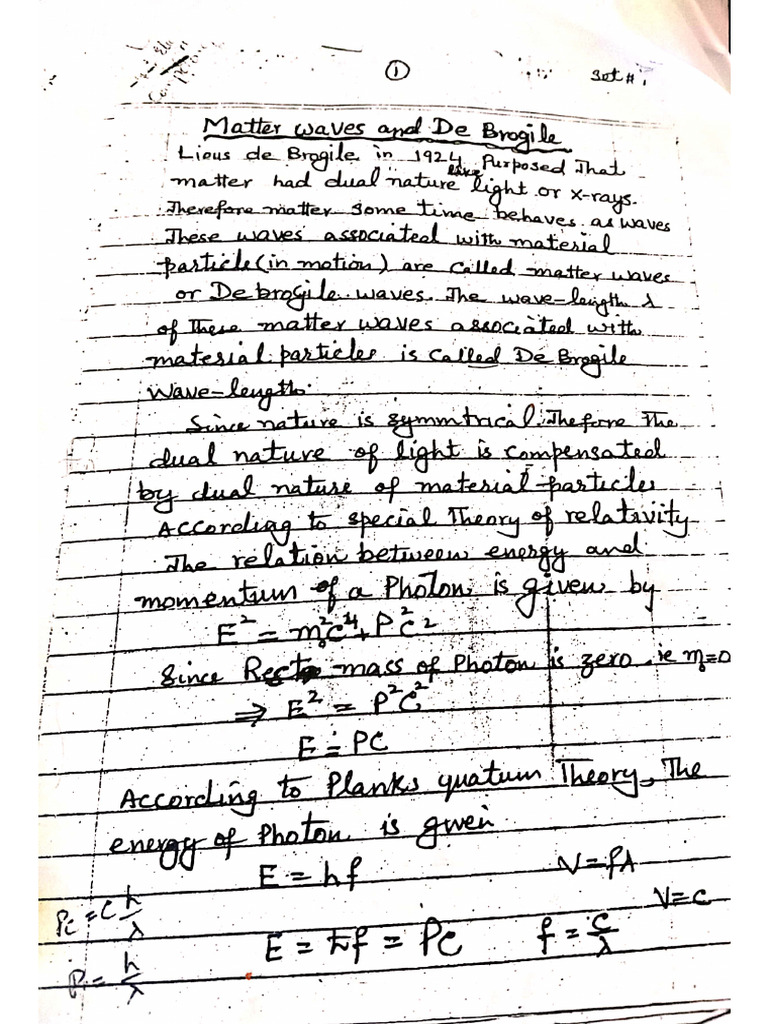 ① Set # 1
Matter waves and De Brogile
Lious de Brogile in 1924 Purposed That
matter had dual nature like light or x-rays.
Therefore matter some time behaves as waves
These waves associated with material
particle (in motion) are called matter waves
or De brogile waves. The wave-length λ
of these matter waves associated with
material particles is called De Brogile
wave-length.
Since nature is symmtrical. Thefore The
dual nature of light is compensated
by dual nature of material particles
According to special Theory of relativity
The relation between energy and
momentum of a Photon is given by
E² = m₀²c⁴ + P²c²
Since Rest mass of Photon is zero. ie m₀=0
⇒ E² = P²c²
E = PC
According to Planks quatum Theory, The
energy of Photon is given
E = hf V = fλ
V = c
Pc = c h/λ
E = hf = PC f = c/λ
P = h/λ